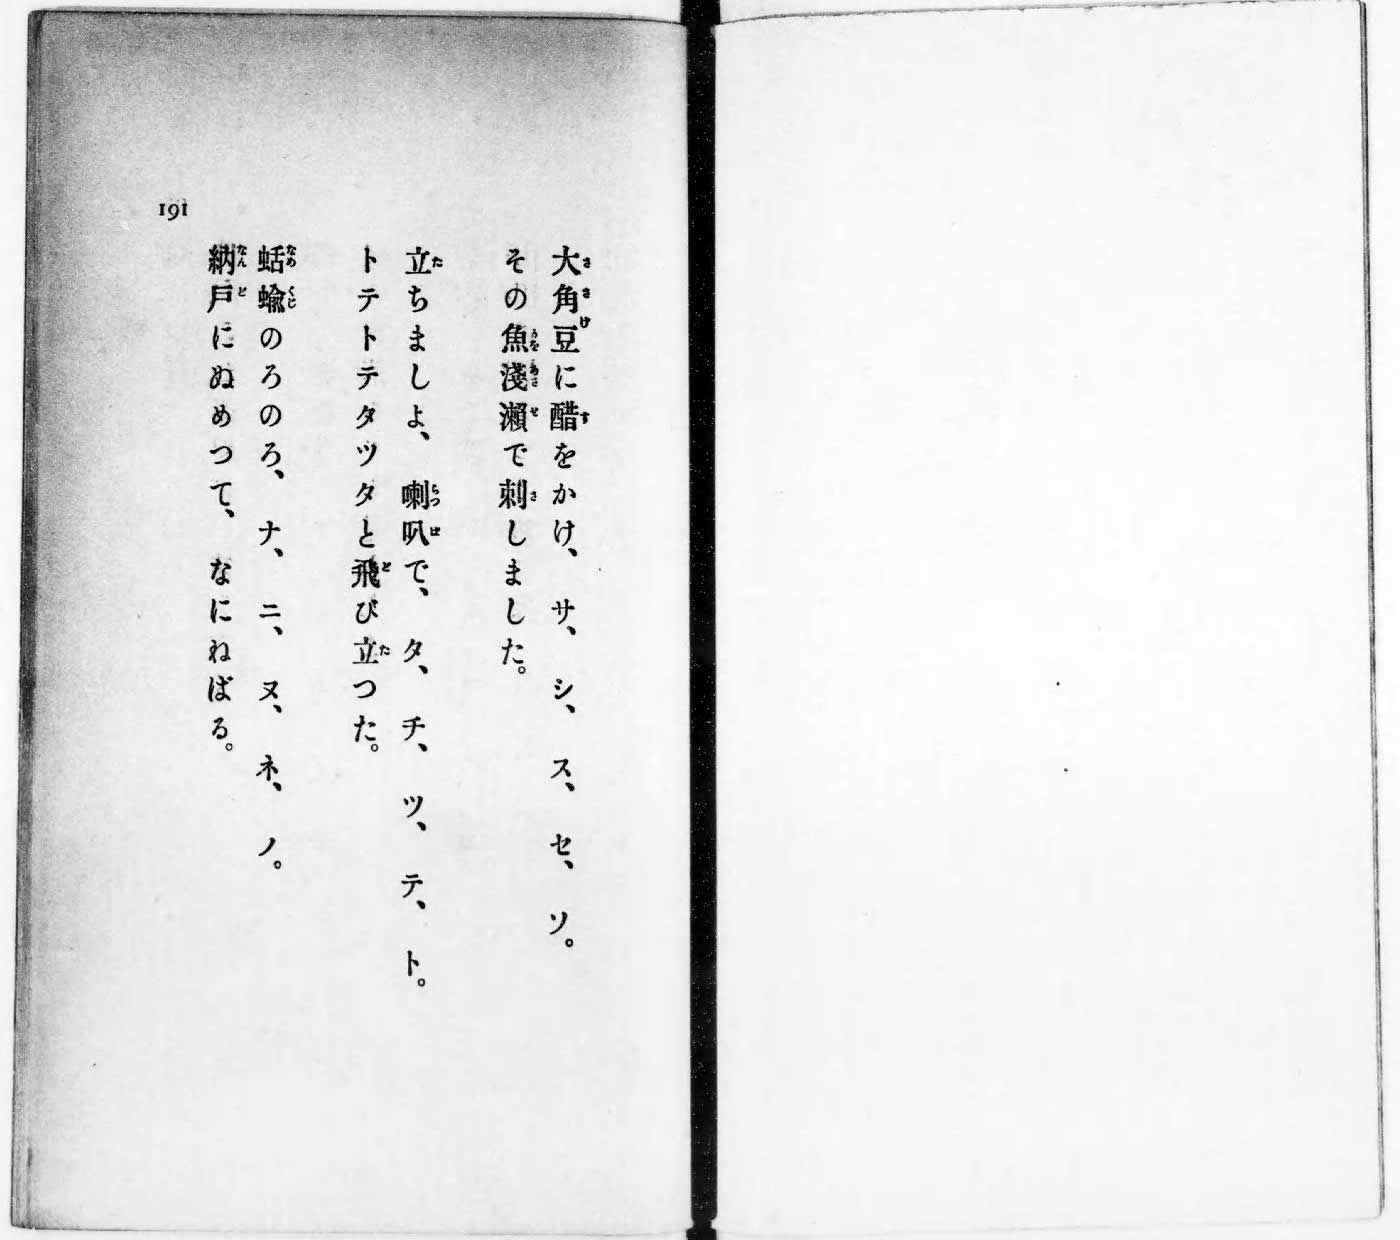 大角豆に醋をかけ、サ、シ、ス、セ、ソ。
その魚淺瀨で刺しました。
立ちましよ、喇叭で、タ、チ、ツ、テ、ト。
トテトテタツタと飛び立つた。
蛞蝓のろのろ、ナ、ニ、ヌ、ネ、ノ。
納戸にぬめつて、なにねばる。
191